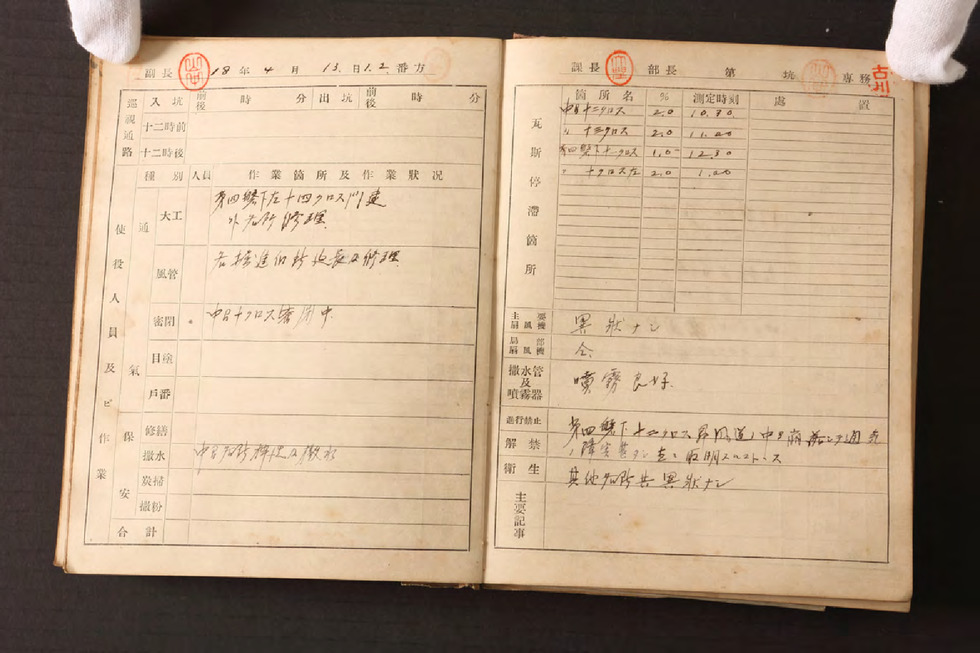 副長 18年4月13日1.2番方
巡視通路 入坑 前後 時 分 出坑 前後 時 分
十二時前
十二時後
種別 人員 作業箇所及作業狀況
使役人員及ビ作業
通氣
大工 第四盤下左十四クロス門建
外 修理
風管 各掘進個所延長及修理
密閉 中目十クロス密閉中
目塗
戶番
保安
修繕
撒水 中目 掃除及撒水
炭掃
撒粉
合計
課長 部長 第 坑 專務 古川
瓦斯停滯箇所
箇所名 % 測定時刻 處置
中目十二クロス 2.0 10.30
〃 十三クロス 2.0 11.20
第四盤下十一クロス 1.0 12.30
〃 十クロス左 2.0 1.20
主要扇風機 異狀ナシ
局部扇風機 仝
撒水管及噴霧器 噴霧良好
進行禁止 第四盤下十二クロス
解禁
衛生 其他 共異狀ナシ
主要記事